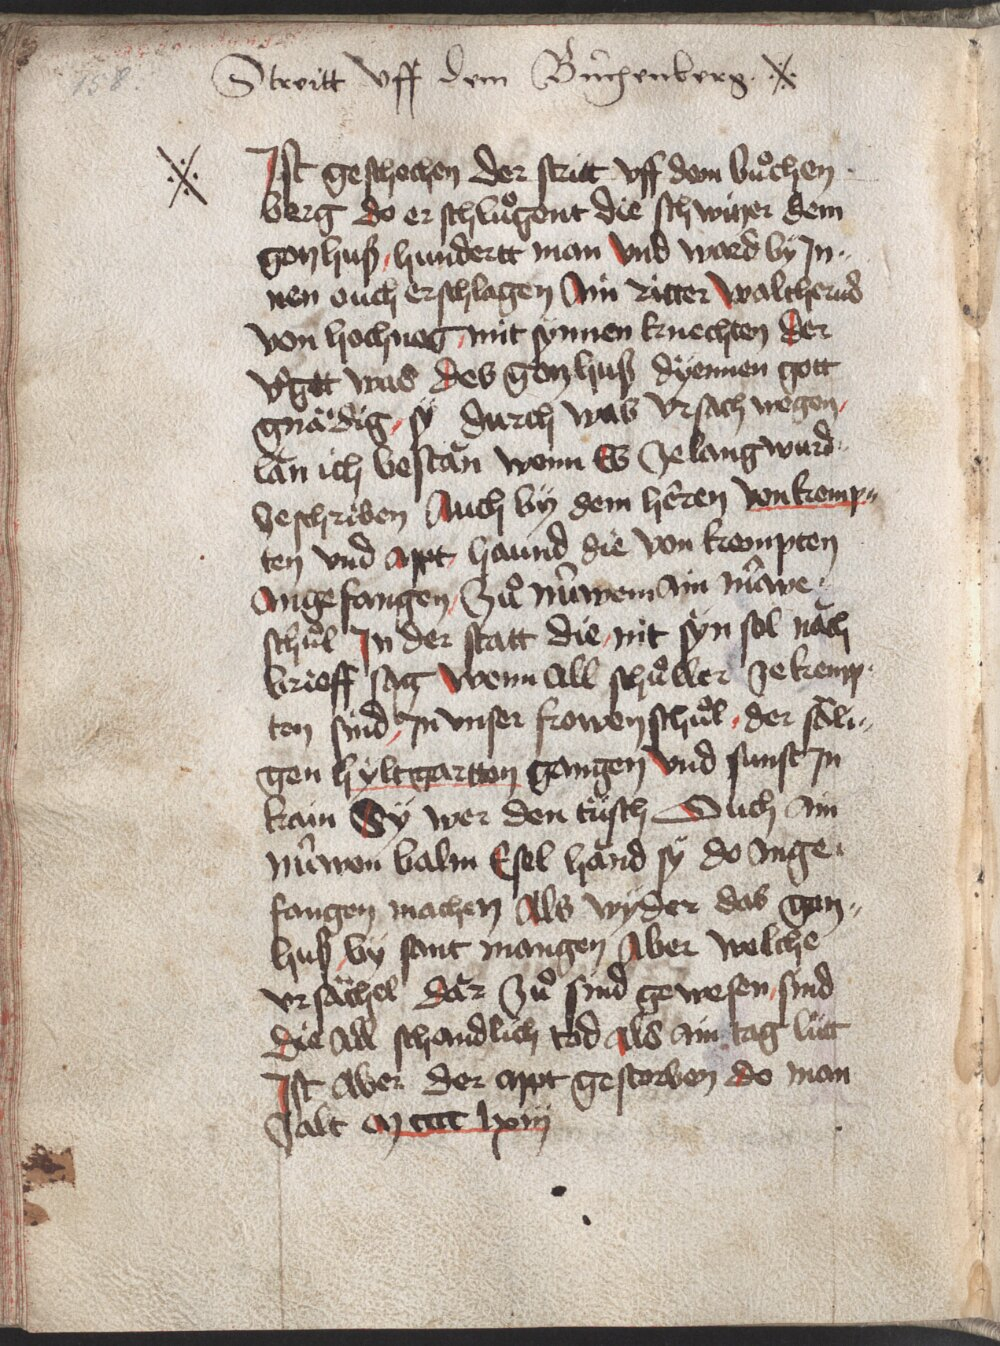 158.
Streitt vff dem Bůchenberg. ※
※ Ist geschechen der stritt vff dem bůchen
berg do er schlůgent die schwitzer dem
gotzhuß hundertt man vnd ward by In-
nen ouch erschlagen Ain ritter waltherus
von hochnog mit synnen knechten der
vogtt was des gotzhuß dyennen gott
gnädig sy durch was vrsach wegen
län ich bestän wenn Es ze lang wurd
beschriben Auch by dem heren von kemp-
ten vnd appt haund die von kempten
Angefangen zů nüwem Ain nüwe
schůl In der statt die nit syn sol näch
brieff sag wenn All schůller ze kemp-
ten sind In vnser frowen schůl der säli-
gen hyltgartten gangen vnd sunst In
kain Sy wer den tüsch Ouch Ain
nüwen balm Esel händ sy do Ange-
fangen machen Als wyder das gotz-
huß by sant mangen Aber welche
vrsächel där zů sind gewesen sind
die All schandlich tod als ain tag litt
Ist Aber der appt gestorben do man
zalt M cccc lxiij